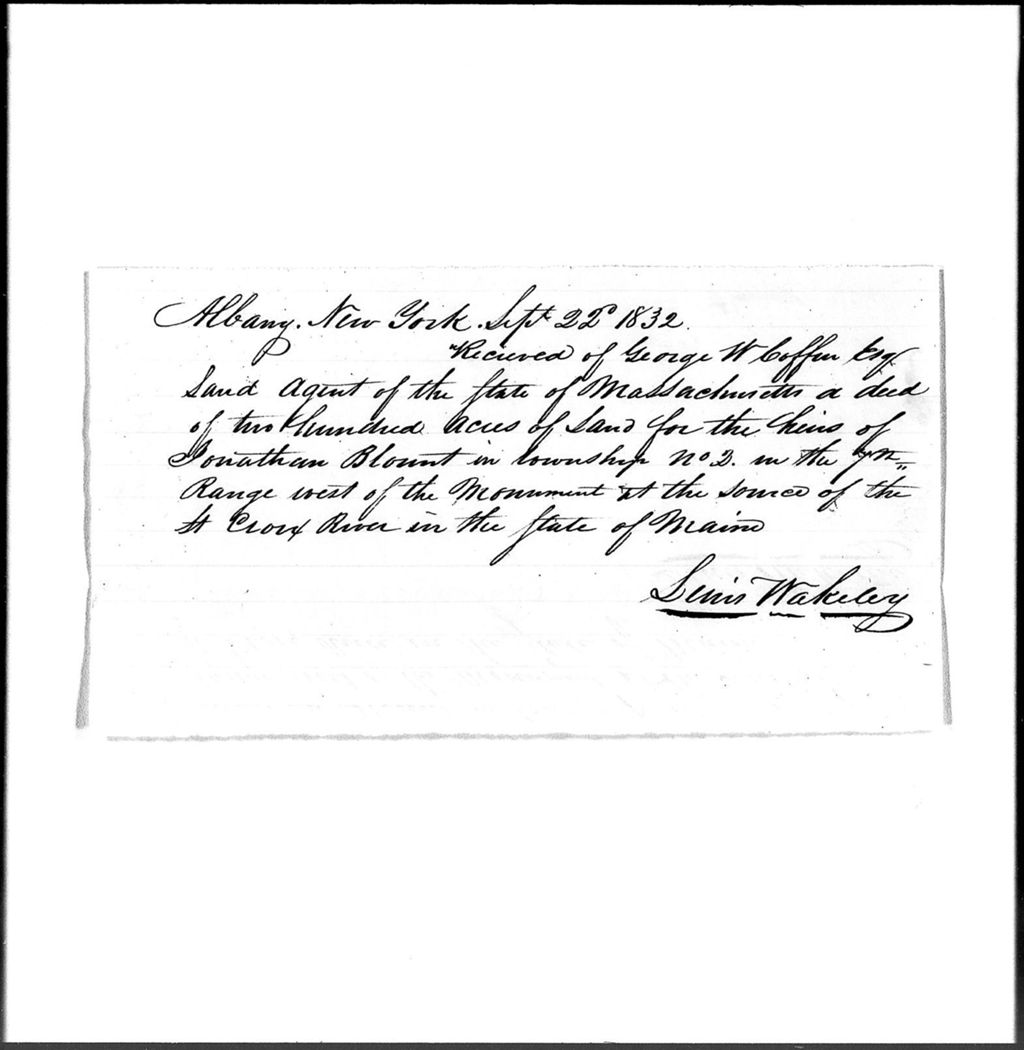 Albany. New York. Sept 22d 1832.
Recieved of George W Coffin Esq
Land Agent of the State of Massachusetts a deed
of two hundred acres of Land for the heirs of
Jonathan Blount in township No 2. in the 7th
Range west of the Monument at the source of the
St Croix River in the State of Maine
Lewis Wakeley